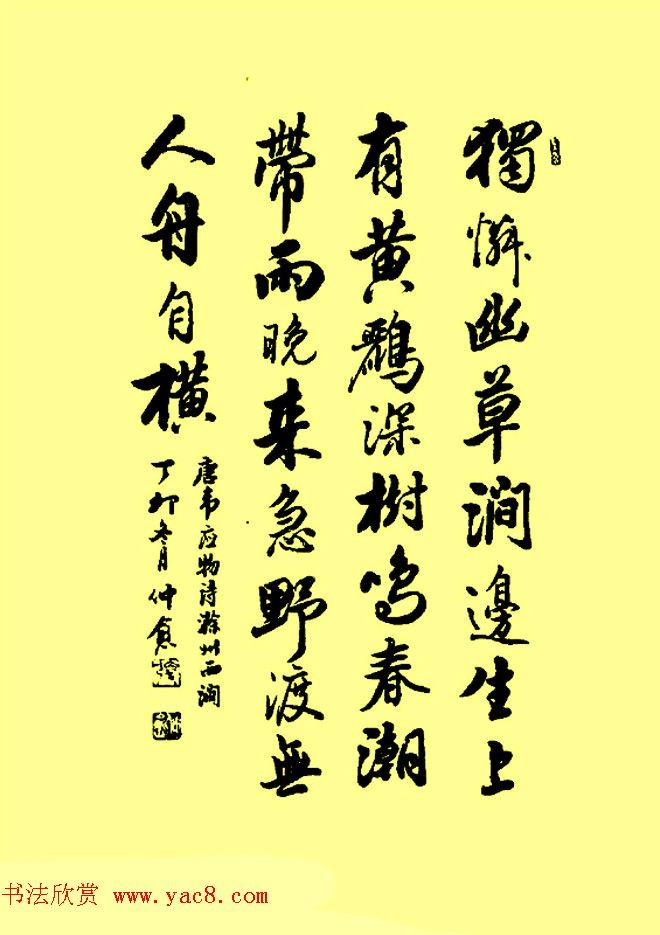 獨憐幽草澗邊生上
有黃鸝深樹鳴春潮
帶雨晚來急野渡無
人舟自橫
唐韦应物诗滁州西澗
丁卯冬月仲愈
书法欣赏 www.yac8.com